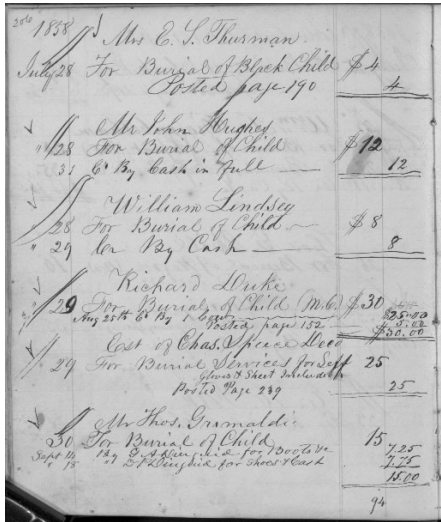 206 1858
Mrs E. S. Thurman
July 28 For Burial of Black Child $4
Posted page 190 4
Mr John Hughes
" 28 For Burial of Child $12
31 Cr By Cash in full 12
William Lindsey
28 For Burial of Child $8
" 29 Cr By Cash 8
Richard Duke
29 For Burial of Child (M.C.) $30
Aug 25th Cr By 1 Cow 25.00
Posted page 152 5.00
$30.00
Est of Chas. Spence Decd
29 For Burial Services for Self 25
Gloves & Sheet Included
Posted Page 239 25
Mr Thos. Grimaldi
30 For Burial of Child 15
Sept 14 By Diuguid for Boots &c 7.25
" 15 " Diuguid for Shoes & Cash 7.75
15.00
94